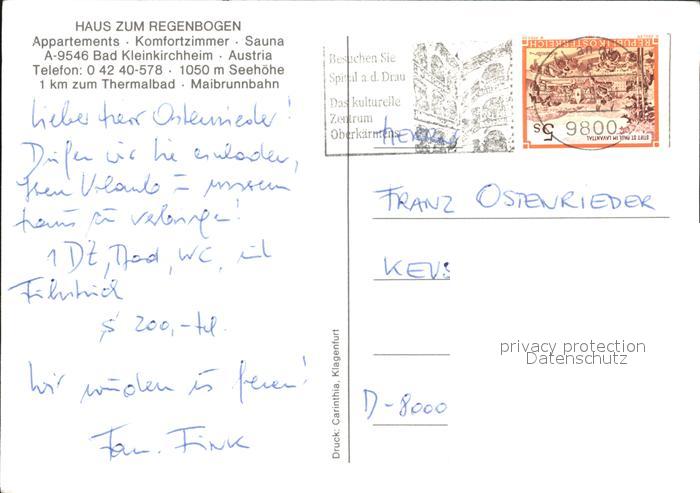 HAUS ZUM REGENBOGEN
Appartements · Komfortzimmer · Sauna
A-9546 Bad Kleinkirchheim · Austria
Telefon: 0 42 40-578 · 1050 m Seehöhe
1 km zum Thermalbad · Maibrunnbahn
Lieber Herr Ostenrieder!
Dürfen wir Sie einladen,
Ihren Urlaub in unserem
Haus zu verbringen!
1 DZ, Bad, WC, mit
Frühstück
S 200,-
Wir würden uns freuen!
Fam. Fink
Druck: Carinthia, Klagenfurt
Besuchen Sie
Spittal a. d. Drau
Das kulturelle
Zentrum
Oberkärntens
REPUBLIK ÖSTERREICH
STIFT ST. PAUL IM LAVANTTAL
5 S
9800
HERRN
FRANZ OSTENRIEDER
D-8000
privacy protection
Datenschutz